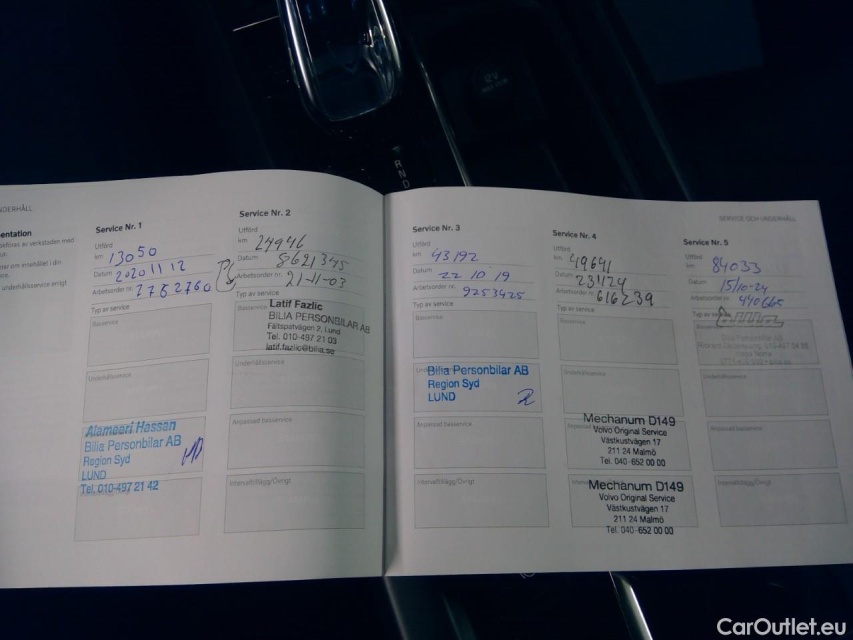 R
N
D
12V
NDERHÅLL
entation
Service Nr. 1
Utförd
km 13050
Datum 20201112
Arbetsorder nr. 2752760
Typ av service
Basservice
Underhållsservice
Alameeri Hassan
Bilia Personbilar AB
Region Syd
LUND
Tel. 010-497 21 42
Service Nr. 2
Utförd
km 24946
Datum 8621345
Arbetsorder nr. 21-11-03
Typ av service
Latif Fazlic
BILIA PERSONBILAR AB
Fältspatvägen 2, Lund
Tel. 010-497 21 03
latif.fazlic@bilia.se
Underhållsservice
Anpassad basservice
Intervalltillägg/Övrigt
Service Nr. 3
Utförd
km 43192
Datum 22 10 19
Arbetsorder nr. 9253425
Typ av service
Basservice
Bilia Personbilar AB
Region Syd
LUND
Anpassad basservice
Intervalltillägg/Övrigt
Service Nr. 4
Utförd
km 49641
Datum 231124
Arbetsorder nr. 616239
Typ av service
Basservice
Underhållsservice
Mechanum D149
Volvo Original Service
Västkustvägen 17
211 24 Malmö
Tel. 040-652 00 00
Mechanum D149
Volvo Original Service
Västkustvägen 17
211 24 Malmö
Tel. 040-652 00 00
SERVICE OCH UNDERHÅLL
Service Nr. 5
Utförd
km 84033
Datum 15/10-24
Arbetsorder nr. 440665
Typ av
Underhållsservice
Anpassad basservice
Intervalltillägg/Övrigt
CarOutlet.eu